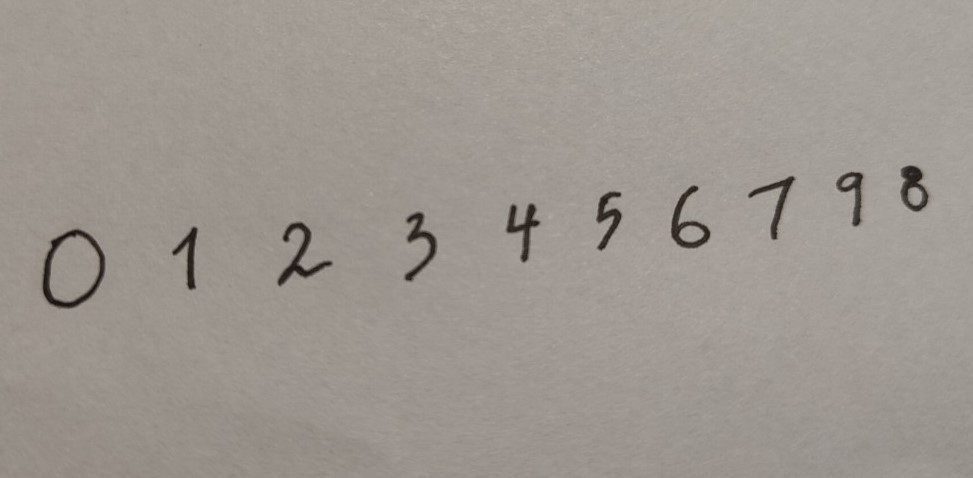 0 1 2 3 4 5 6 7 9 8